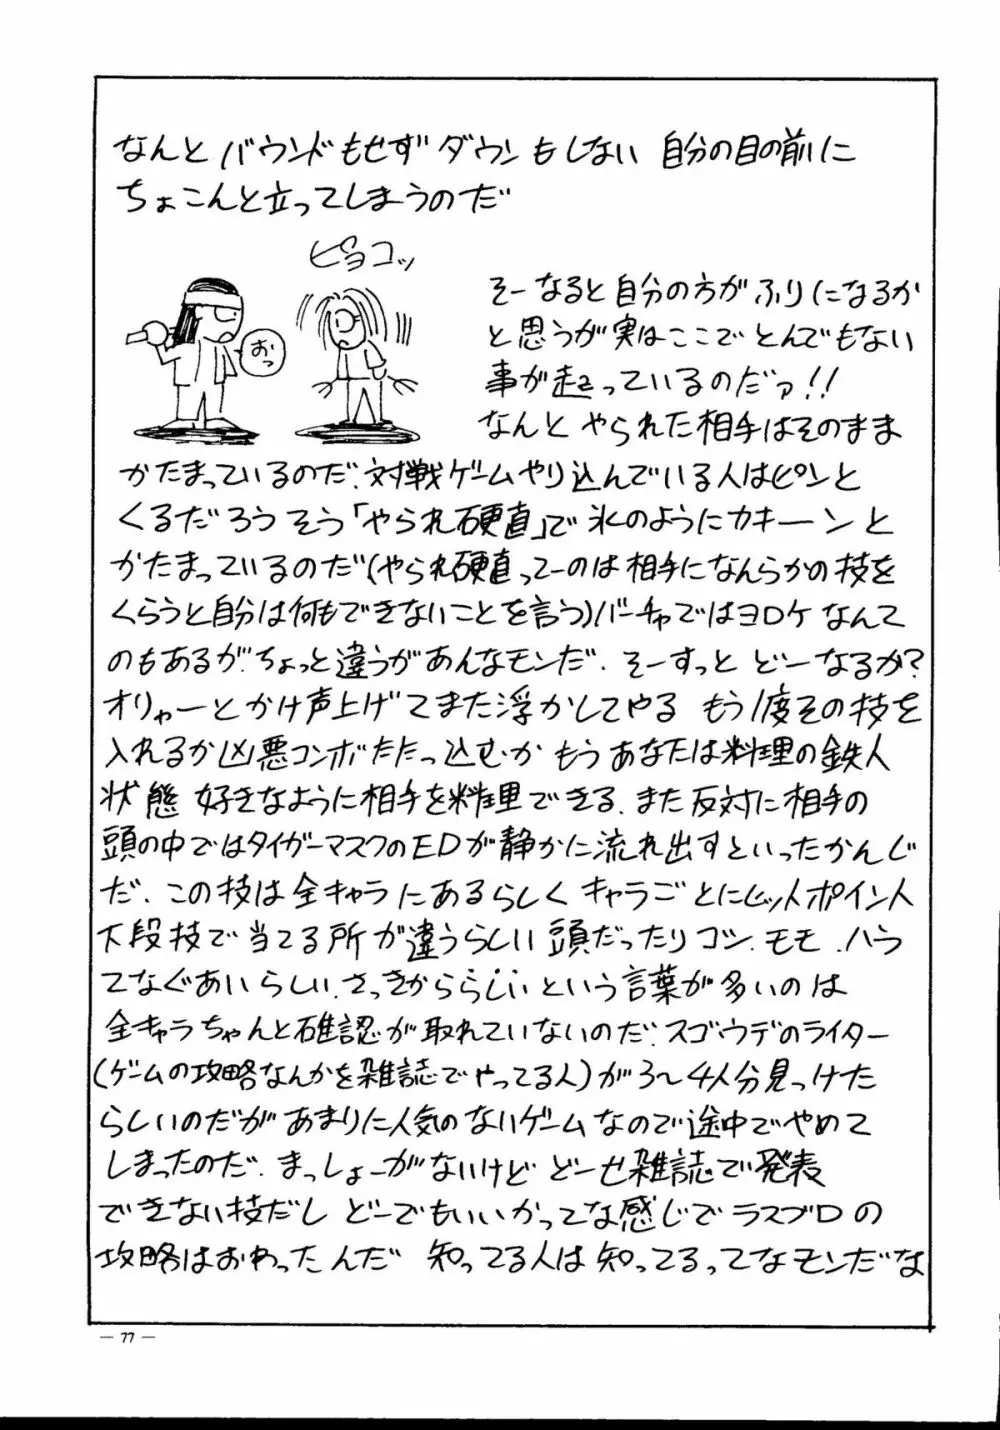 なんと バウンドもせず ダウンもしない 自分の目の前に
ちょこんと立ってしまうのだ
ピョコッ
おっ
そーなると自分の方がふりになるか
と思うが実はここでとんでもない
事が起こっているのだァ!!
なんと やられた相手はそのまま
かたまっているのだ.対戦ゲームやり込んでいる人はピンと
くるだろう そう「やられ硬直」で氷のようにカキーンと
かたまっているのだ(やられ硬直ってーのは相手になんらかの技を
くらうと自分は何もできないことを言う)バーチャではヨロケなんて
のもあるが.ちょっと違うがあんなモンだ.そーすっと どーなるか?
オリャーとかけ声上げてまた浮かしてやる もう1度その技を
入れるか凶悪コンボたたっ込むか もうあなたは料理の鉄人
状態 好きなように相手を料理できる.また反対に相手の
頭の中ではタイガーマスクのEDが静かに流れ出すといったかんじ
だ.この技は全キャラにあるらしくキャラごとにヒットポイント
下段技で当てる所が違うらしい 頭だったりコシ.モモ.ハラ
てなぐあいらしい.さっきから らしい という言葉が多いのは
全キャラちゃんと確認が取れていないのだ.スゴウデのライター
(ゲームの攻略なんかを雑誌でやってる人)が3〜4人分見っけた
らしいのだが あまりに人気のないゲームなので途中でやめて
しまったのだ.まっしょーがないけど どーせ雑誌で発表
できない技だし どーでもいいかってな感じでラスブロの
攻略はおわったんだ 知ってる人は知ってるってなモンだな
— 77 —